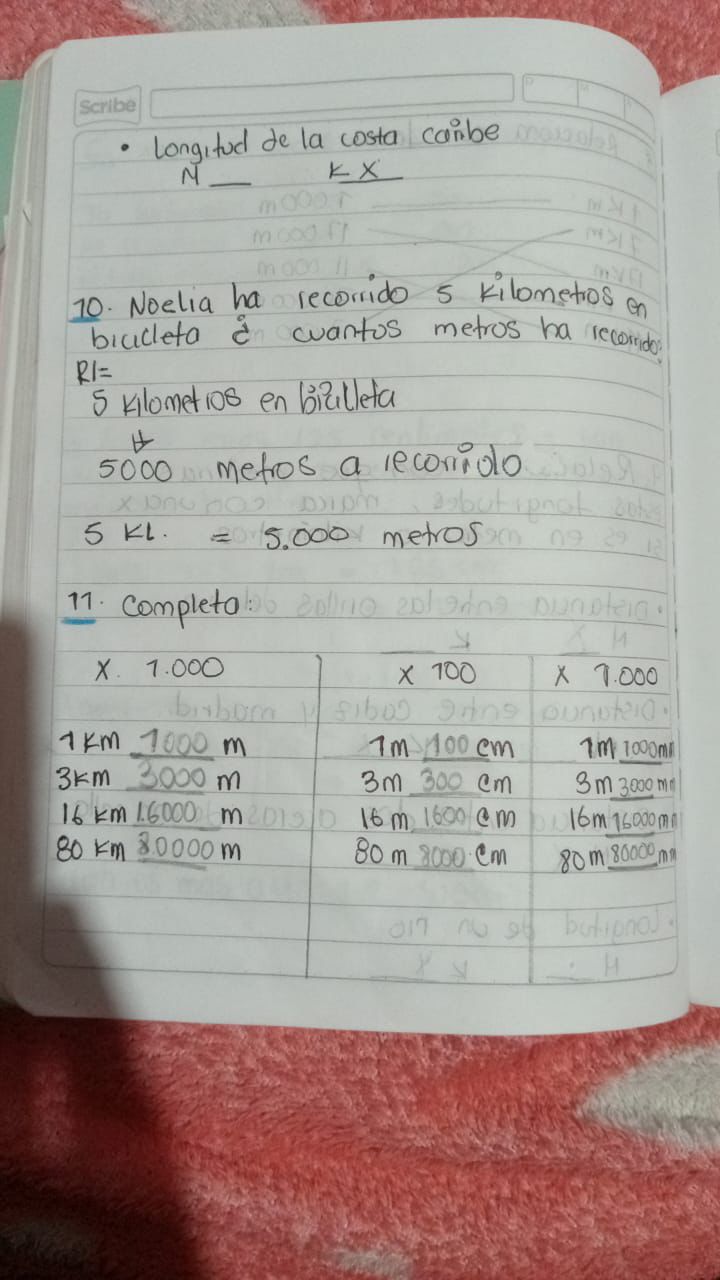 Scribe
• Longitud de la costa caribe
N __ K X
10. Noelia ha recorrido 5 kilometros en
bicicleta ¿ cuantos metros ha recorrido?
R/=
5 kilometros en bicicleta
↓
5000 metros a recorrido
5 KL. = 5.000 metros
11. Completa:
X. 1.000 X 100 X 1.000
1 km 1000 m 1m 100 cm 1m 1000 mm
3 km 3000 m 3m 300 cm 3m 3000 mm
16 km 16000 m 16m 1600 cm 16m 16000 mm
80 km 80000 m 80m 8000 cm 80m 80000 mm